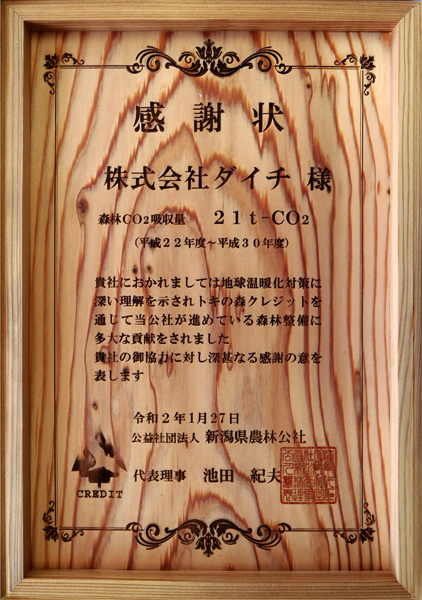 感謝状
株式会社ダイチ 様
森林CO2吸収量 21t-CO2
（平成22年度～平成30年度）
貴社におかれましては地球温暖化対策に
深い理解を示されトキの森クレジットを
通じて当公社が進めている森林整備に
多大な貢献をされました
貴社の御協力に対し深甚なる感謝の意を
表します
令和2年1月27日
公益社団法人 新潟県農林公社
代表理事 池田 紀夫
CREDIT